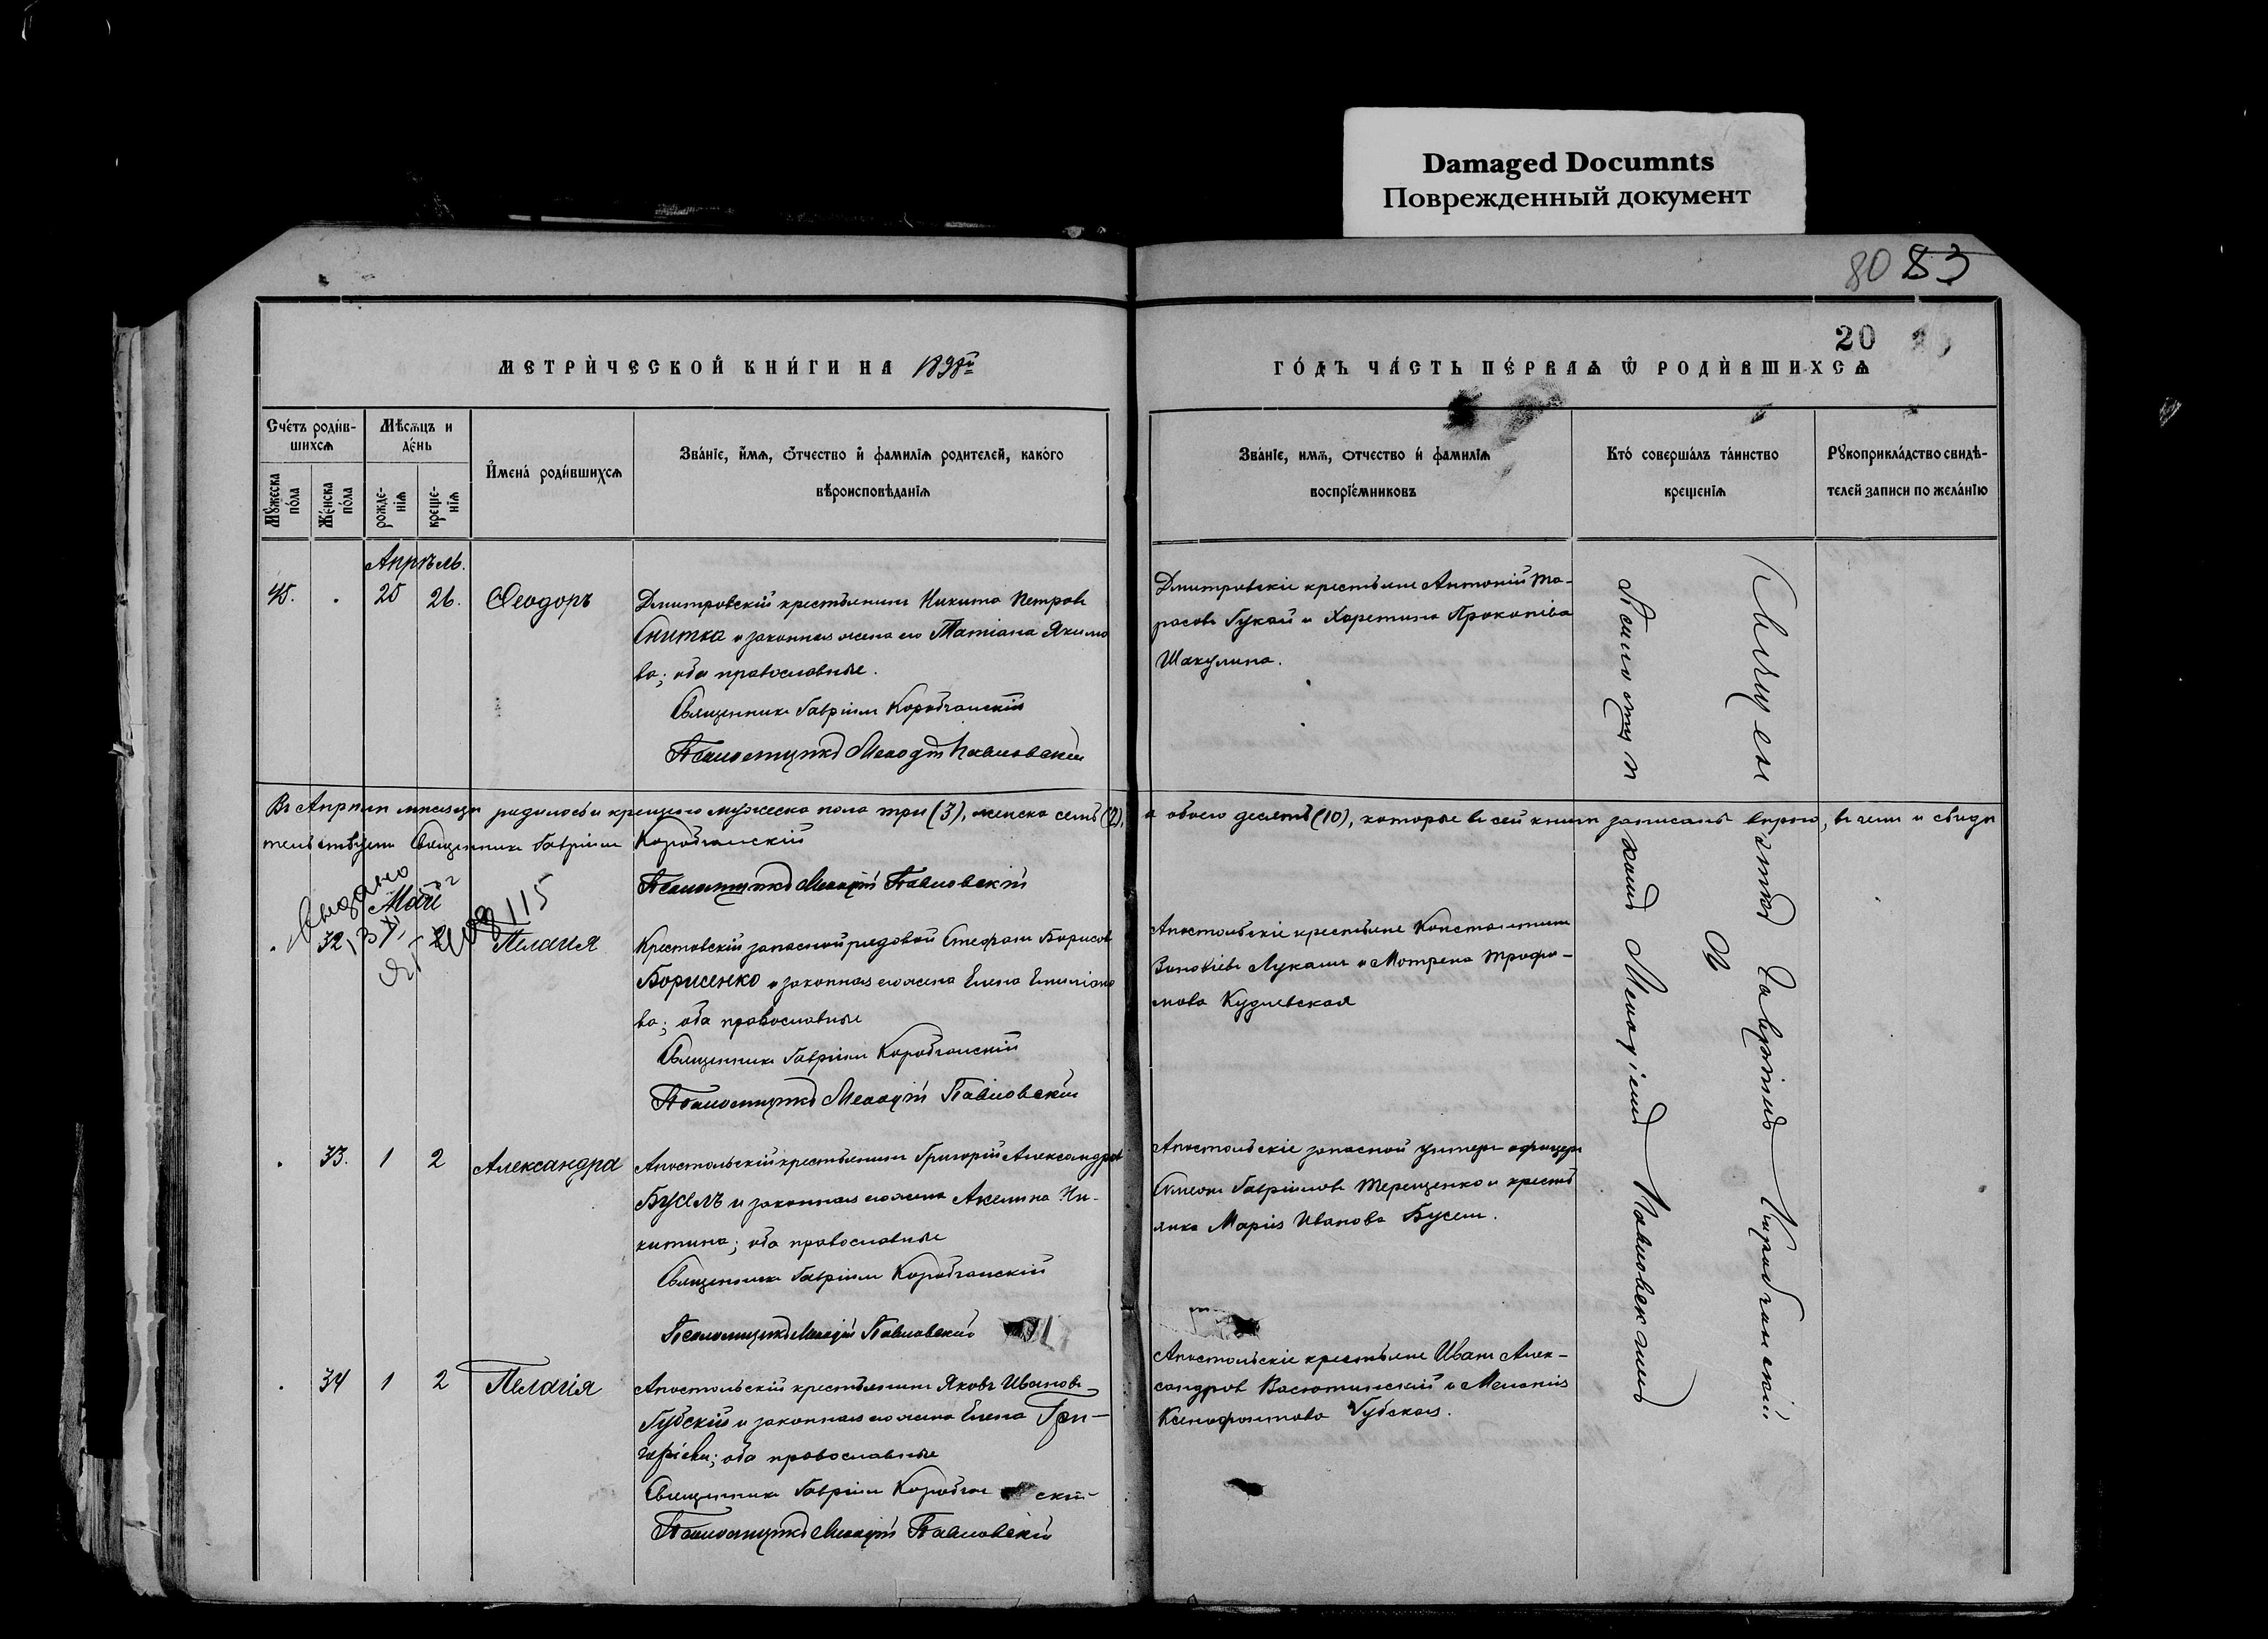 Damaged Documnts
Поврежденный документ
80 83
20
МЕТРИ́ЧЕСКОЙ КНИ́ГИ НА 1898й
ГО́ДЪ ЧА́СТЬ ПЕ́РВАѦ Ѿ РОДИ́ВШИХСѦ
Сче́тъ роди́в-
шихсѧ
Мꙋ́жеска
по́ла
Же́нска
по́ла
Мѣ́сѧцъ и
де́нь
рожде-
нїѧ
креще-
нїѧ
И҆мена̀ роди́вшихсѧ
Зва́нїе, и҆́мѧ, ѻ҆́тчество и҆ фамилїѧ родителей, како́го
вѣроисповѣданїѧ
Зва́нїе, имѧ, отчество и҆ фамилїѧ
воспрїе́мниковъ
Кто́ соверша́лъ та́инство
креще́нїѧ
Рꙋкоприкла́дство свидѣ́-
телей записи по жела́нїю
Апрѣль.
45. . 25 26. Ѳеодоръ
Дмитровскій крестьянинъ Никита Петровъ
Снитка и законная жена его Татіана Якимо
ва; оба православные.
Священникъ Гавріилъ Коробчанскій
Псаломщикъ Меѳодій Павловскій
Дмитровскіе крестьяне Антоній Та-
расовъ Гукай и Харитина Прокопіева
Шакулина.
Въ Апрѣлѣ мѣсяцѣ родилось и крещено мужеска пола три (3), женска семь (7), а обоего десять (10), которые въ сей книгѣ записаны вѣрно, въ чемъ и свидѣ
тельствуемъ Священникъ Гавріилъ Коробчанскій
Псаломщикъ Меѳодій Павловскій
Выдано
115
Май
. 32. 2 Пелагія
Крестовскій запасной рядовой Стефанъ Борисовъ
Борисенко и законная его жена Елена Емиліано
ва; оба православные
Священникъ Гавріилъ Коробчанскій
Псаломщикъ Меѳодій Павловскій
Апостольскіе крестьяне Константинъ
Зиновіевъ Лукашъ и Мотрена Трофи-
мова Кудлевская
. 33. 1 2 Александра
Апостольскій крестьянинъ Григорій Александровъ
Бусслъ и законная его жена Акелина Ни-
китина; оба православные
Священникъ Гавріилъ Коробчанскій
Псаломщикъ Меѳодій Павловскій
Апостольскіе запасной унтеръ-офицеръ
Симеонъ Гавріиловъ Терещенко и кресть
янка Марія Иванова Буселъ.
. 34 1 2 Пелагія
Апостольскій крестьянинъ Яковъ Ивановъ
Губскій и законная его жена Елена Гри-
горіева; оба православные
Священникъ Гавріилъ Коробчанскій
Псаломщикъ Меѳодій Павловскій
Апостольскіе крестьяне Иванъ Алек-
сандровъ Васютинскій и Меланія
Ксенофонтова Губская.
Священникъ Гавріилъ Коробчанскій
съ
Псаломщикомъ Меѳодіемъ Павловскимъ